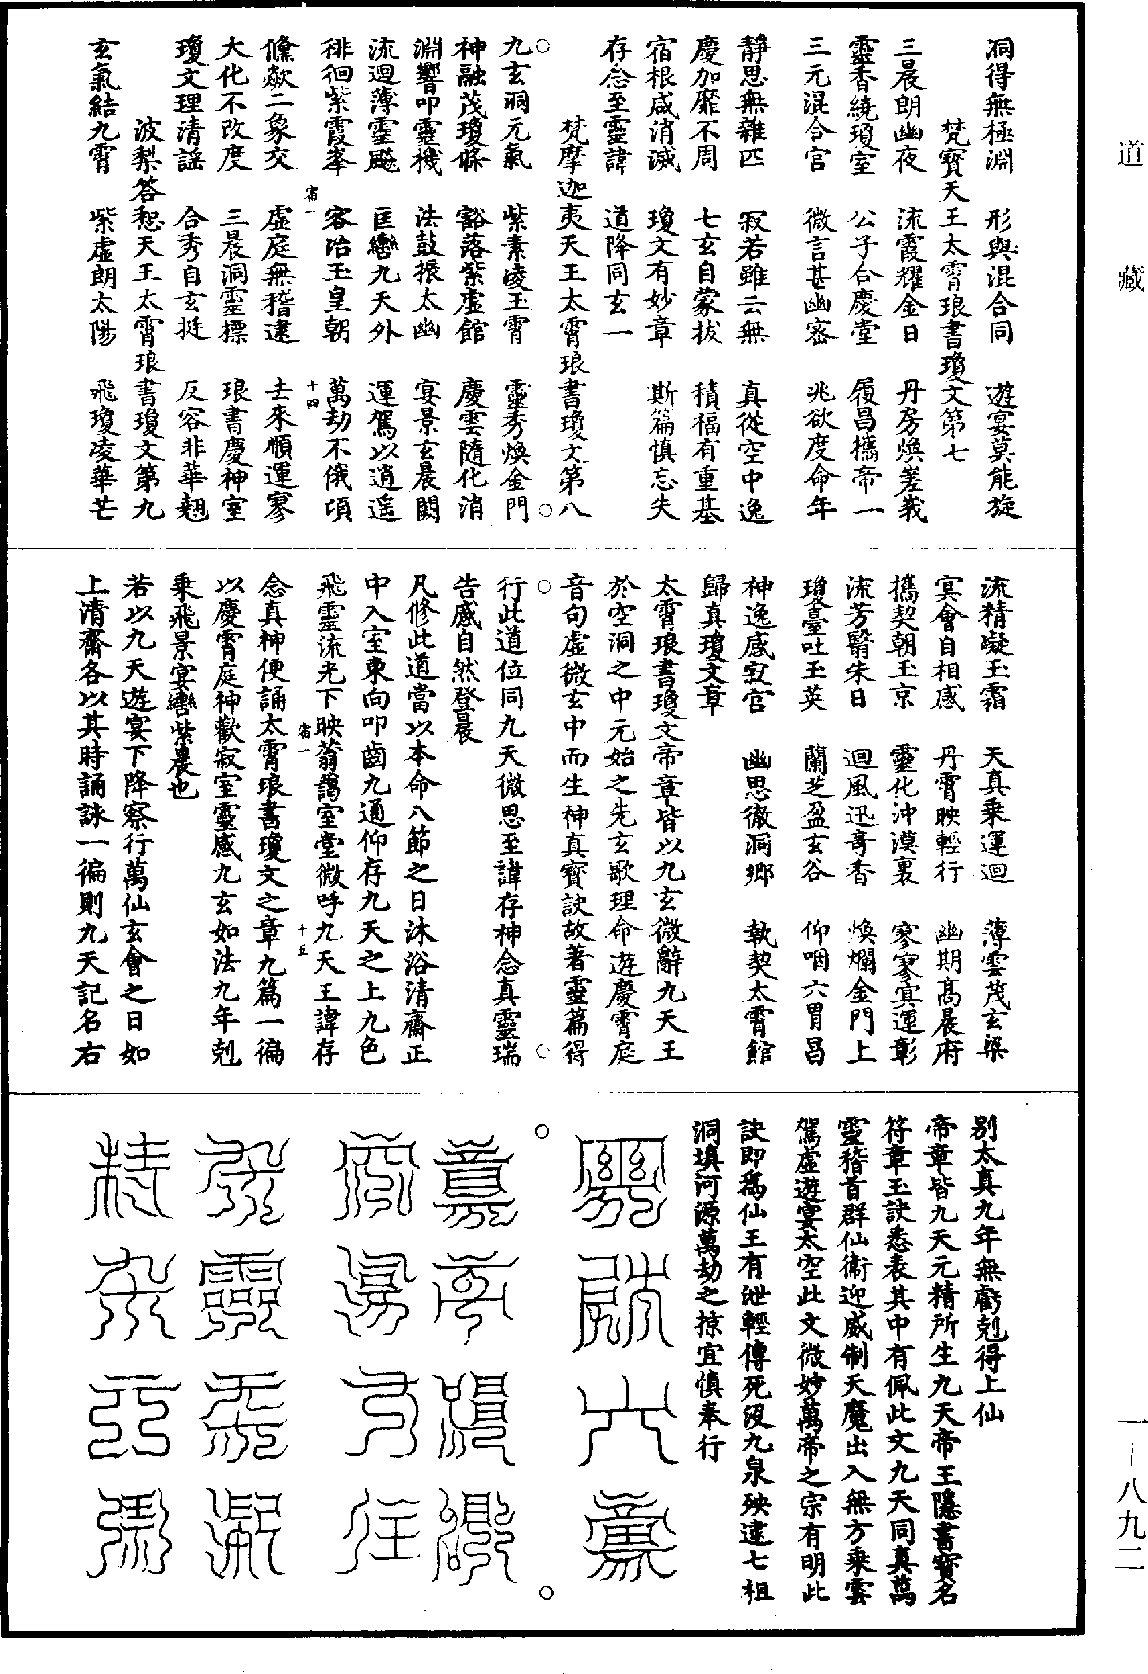 洞得無極淵　形與混合同　遊宴莫能旋
梵寶天王太霄琅書瓊文第七
三晨朗幽夜　流霞耀金日　丹房煥嵳峩
靈香繞瓊室　公子合慶堂　履昌攜帝一
三元混合宮　微言甚幽密　兆欲度命年
靜思無雜匹　寂若雖云無　真從空中逸
慶加靡不周　七玄自蒙拔　積福有重基
宿根咸消滅　瓊文有妙章　斯篇慎忘失
存念至靈諱　道降同玄一
梵摩迦夷天王太霄琅書瓊文第八
九玄洞元氣　紫素凌玉霄　靈秀煥金門
神融茂瓊條　豁落紫虛館　慶雲隨化消
淵響叩靈機　法鼓振太幽　宴景玄晨闕
流迴薄靈飈　匡轡九天外　運駕以逍遥
徘徊紫霞峯　容冶玉皇朝　萬劫不俄頃
宿一　十四
儵歘二象交　虛庭無稽逮　去來順運寥
大化不改度　三晨洞靈標　琅書慶神室
瓊文理清謡　合秀自玄挺　反容非華翹
波梨答惒天王太霄琅書瓊文第九
玄氣結九霄　紫虛朗太陽　飛瓊凌華芒
流精凝玉霜　天真乘運迴　薄雲茂玄梁
冥會自相感　丹霄映輕行　幽期髙晨府
攜契朝玉京　靈化沖漠裏　寥寥冥運彰
流芳翳朱日　迴風迅竒香　煥爛金門上
瓊臺吐玉英　蘭芝盈玄谷　仰咽六胃昌
神逸感寂宮　幽思徹洞鄉　執契太霄館
歸真瓊文章
太霄琅書瓊文帝章皆以九玄微辭九天王
於空洞之中元始之先玄歌理命遊慶霄庭
音句虛微玄中而生神真寶訣故著靈篇得
行此道位同九天微思至諱存神念真靈瑞
告感自然登晨
凡修此道當以本命八節之日沐浴清齋正
中入室東向叩齒九通仰存九天之上九色
飛靈流光下映蓊藹室堂微呼九天王諱存
宿一　十五
念真神便誦太霄琅書瓊文之章九篇一徧
以慶霄庭神歡寂室靈感九玄如法九年剋
乘飛景宴轡紫晨也
若以九天遊宴下降察行萬仙玄會之日如
上清齋各以其時誦詠一徧則九天記名右
別太真九年無虧剋得上仙
帝章皆九天元精所生九天帝王隱書寶名
符章玉訣悉表其中有佩此文九天同真萬
靈稽首群仙衛迎威制天魔出入無方乘雲
駕虛遊宴太空此文微妙萬帝之宗有明此
訣即爲仙王有泄輕傳死沒九泉殃逮七祖
洞填河源萬劫之掠宜慎奉行
道藏
一-八九二